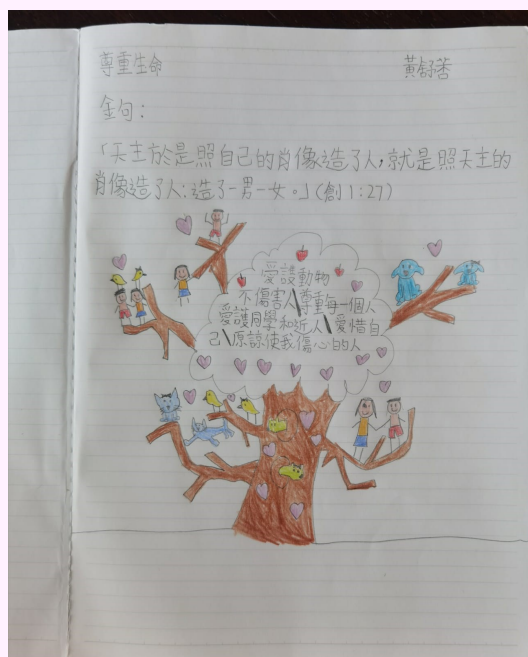 尊重生命 黃舒
金句：
「天主於是照自己的肖像造了人，就是照天主的
肖像造了人：造了一男一女。」(創1:27)
愛護動物
不傷害人\尊重每一個人
愛護同學和近人\愛惜自
己\原諒使我傷心的人